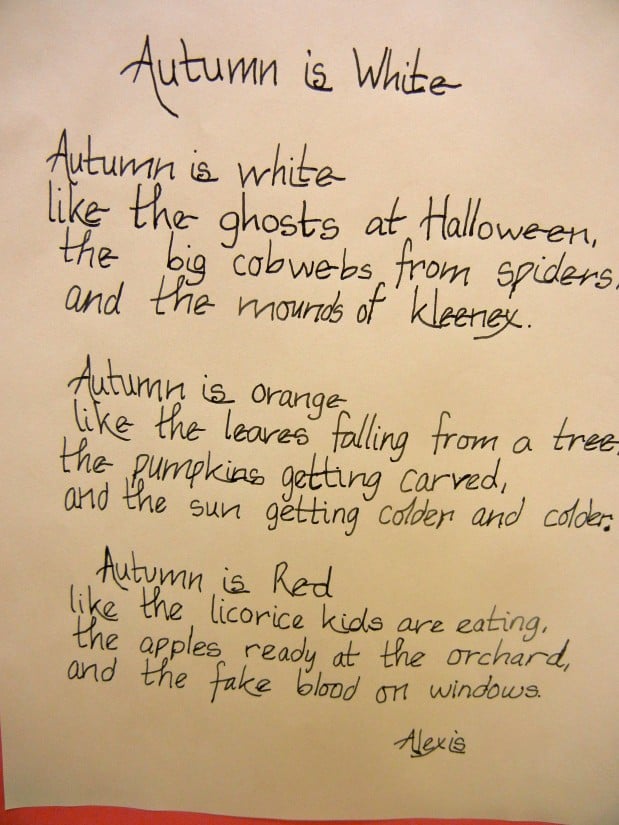 Autumn is White
Autumn is white
like the ghosts at Halloween,
the big cobwebs from spiders,
and the mounds of kleenex.
Autumn is orange
like the leaves falling from a tree,
the pumpkins getting carved,
and the sun getting colder and colder.
Autumn is Red
like the licorice kids are eating,
the apples ready at the orchard,
and the fake blood on windows.
Alexis